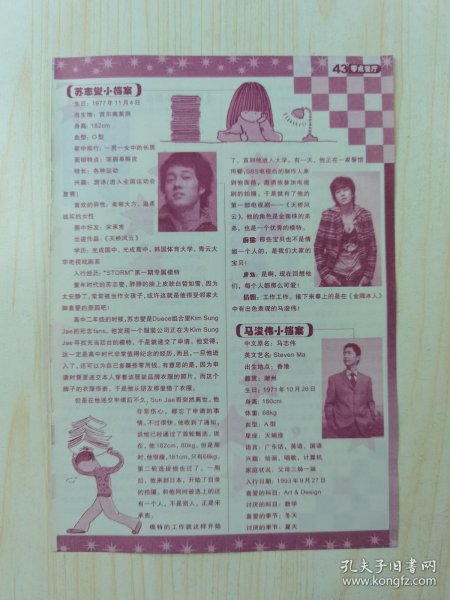 43 零点餐厅
苏志燮小档案
生日：1977年11月4日
出生地：首尔高原洞
身高：182cm
血型：O型
家中排行：一男一女中的长男
面相特点：笨眉单眼皮
特长：各种运动
兴趣：游泳(进入全国运动会
复赛)
喜欢的异性：柔韧大方、温柔
诚实的女性
圈中好友：宋承宪
出道作品：《天桥风云》
学历：光成国中，光成高中，韩国体育大学，青云大
学电视戏剧系
入行经历："STORM"第一期专属模特
童年时代的苏志燮，胖胖的脸上皮肤白皙如雪，因为
太安静了，常常被当作女孩子，或许这就是他很受邻家大
婶喜爱的原因吧！
高中二年级的时候，苏志燮是Duece组合里Kim Sung
Jae的死忠fans。他发现一个服装公司正在为Kim Sung
Jae寻找充当后台的模特，于是就递交了申请。他觉得，
这一定是高中时代非常值得纪念的经历，而且，一旦他进
入了，还可以为自己多赚些零用钱。有意思的是，因为申
请时需要递交本人穿着该服装品牌衣服的照片，而这个
牌子的衣服很贵，于是他从朋友那里借了衣服。
但是在他递交申请后不久，Sun Jae哥突然离世。他
非常伤心，都忘了申请的事
情。不过很快，他收到了通知，
说他已经通过了首轮甄选。现
在，他182cm，80kg。但是那
时，他很瘦，181cm，只有68kg。
第二轮选拔他也过了。一周
后，他来到日本，开始了目录
的拍摄。和他同时被选上的还
有一个人，不是别人，正是宋
承宪。
模特的工作就这样开始
了，直到他进入大学。有一天，他正在一家餐馆
用餐，SBS电视台的制作人来
到他面前，邀请他参加电视
剧的拍摄。于是就有了他的
第一部电视剧——《天桥风
云》。他的角色是金南珠的弟
弟，也是一个优秀的模特。
那些宝贝也不是情
侣一个人的，是我们大家的
宝贝！
是啊，现在回想他
们，每个人都那么可爱！
工作工作。接下来奉上的是在《金牌冰人》
中有出色表现的马浚伟！
马浚伟小档案
中文原名：马志伟
英文艺名：Steven Ma
出生地点：香港
籍贯：潮州
生日：1971年10月26日
身高：180cm
体重：68kg
血型：A型
星座：天蝎座
语言：广东话，英语，国语
兴趣：绘画，唱歌，计算机
家庭状况：父母三姊一妹
入行日期：1993年9月27日
喜爱的科目：Art & Design
讨厌的科目：数学
喜爱的季节：冬天
讨厌的季节：夏天
孔夫子旧书网
www.kongfz.com